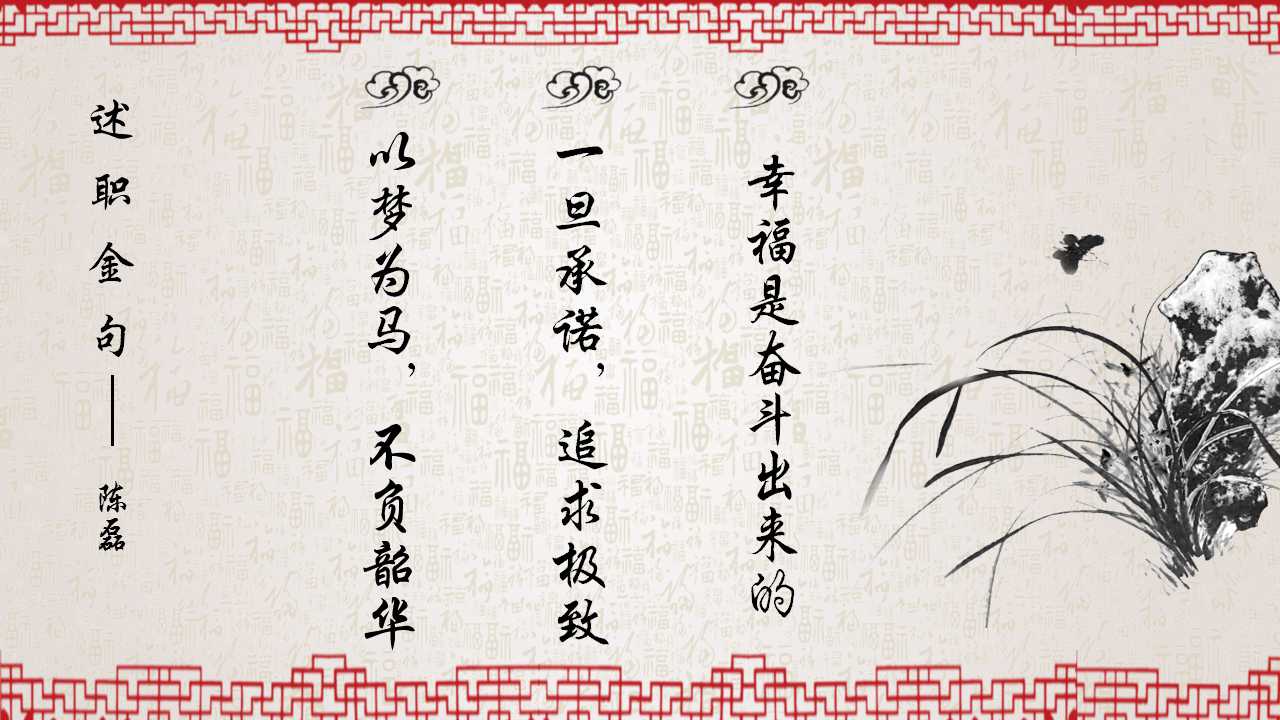 幸福是奋斗出来的
一旦承诺，追求极致
以梦为马，不负韶华
述职金句——陈磊